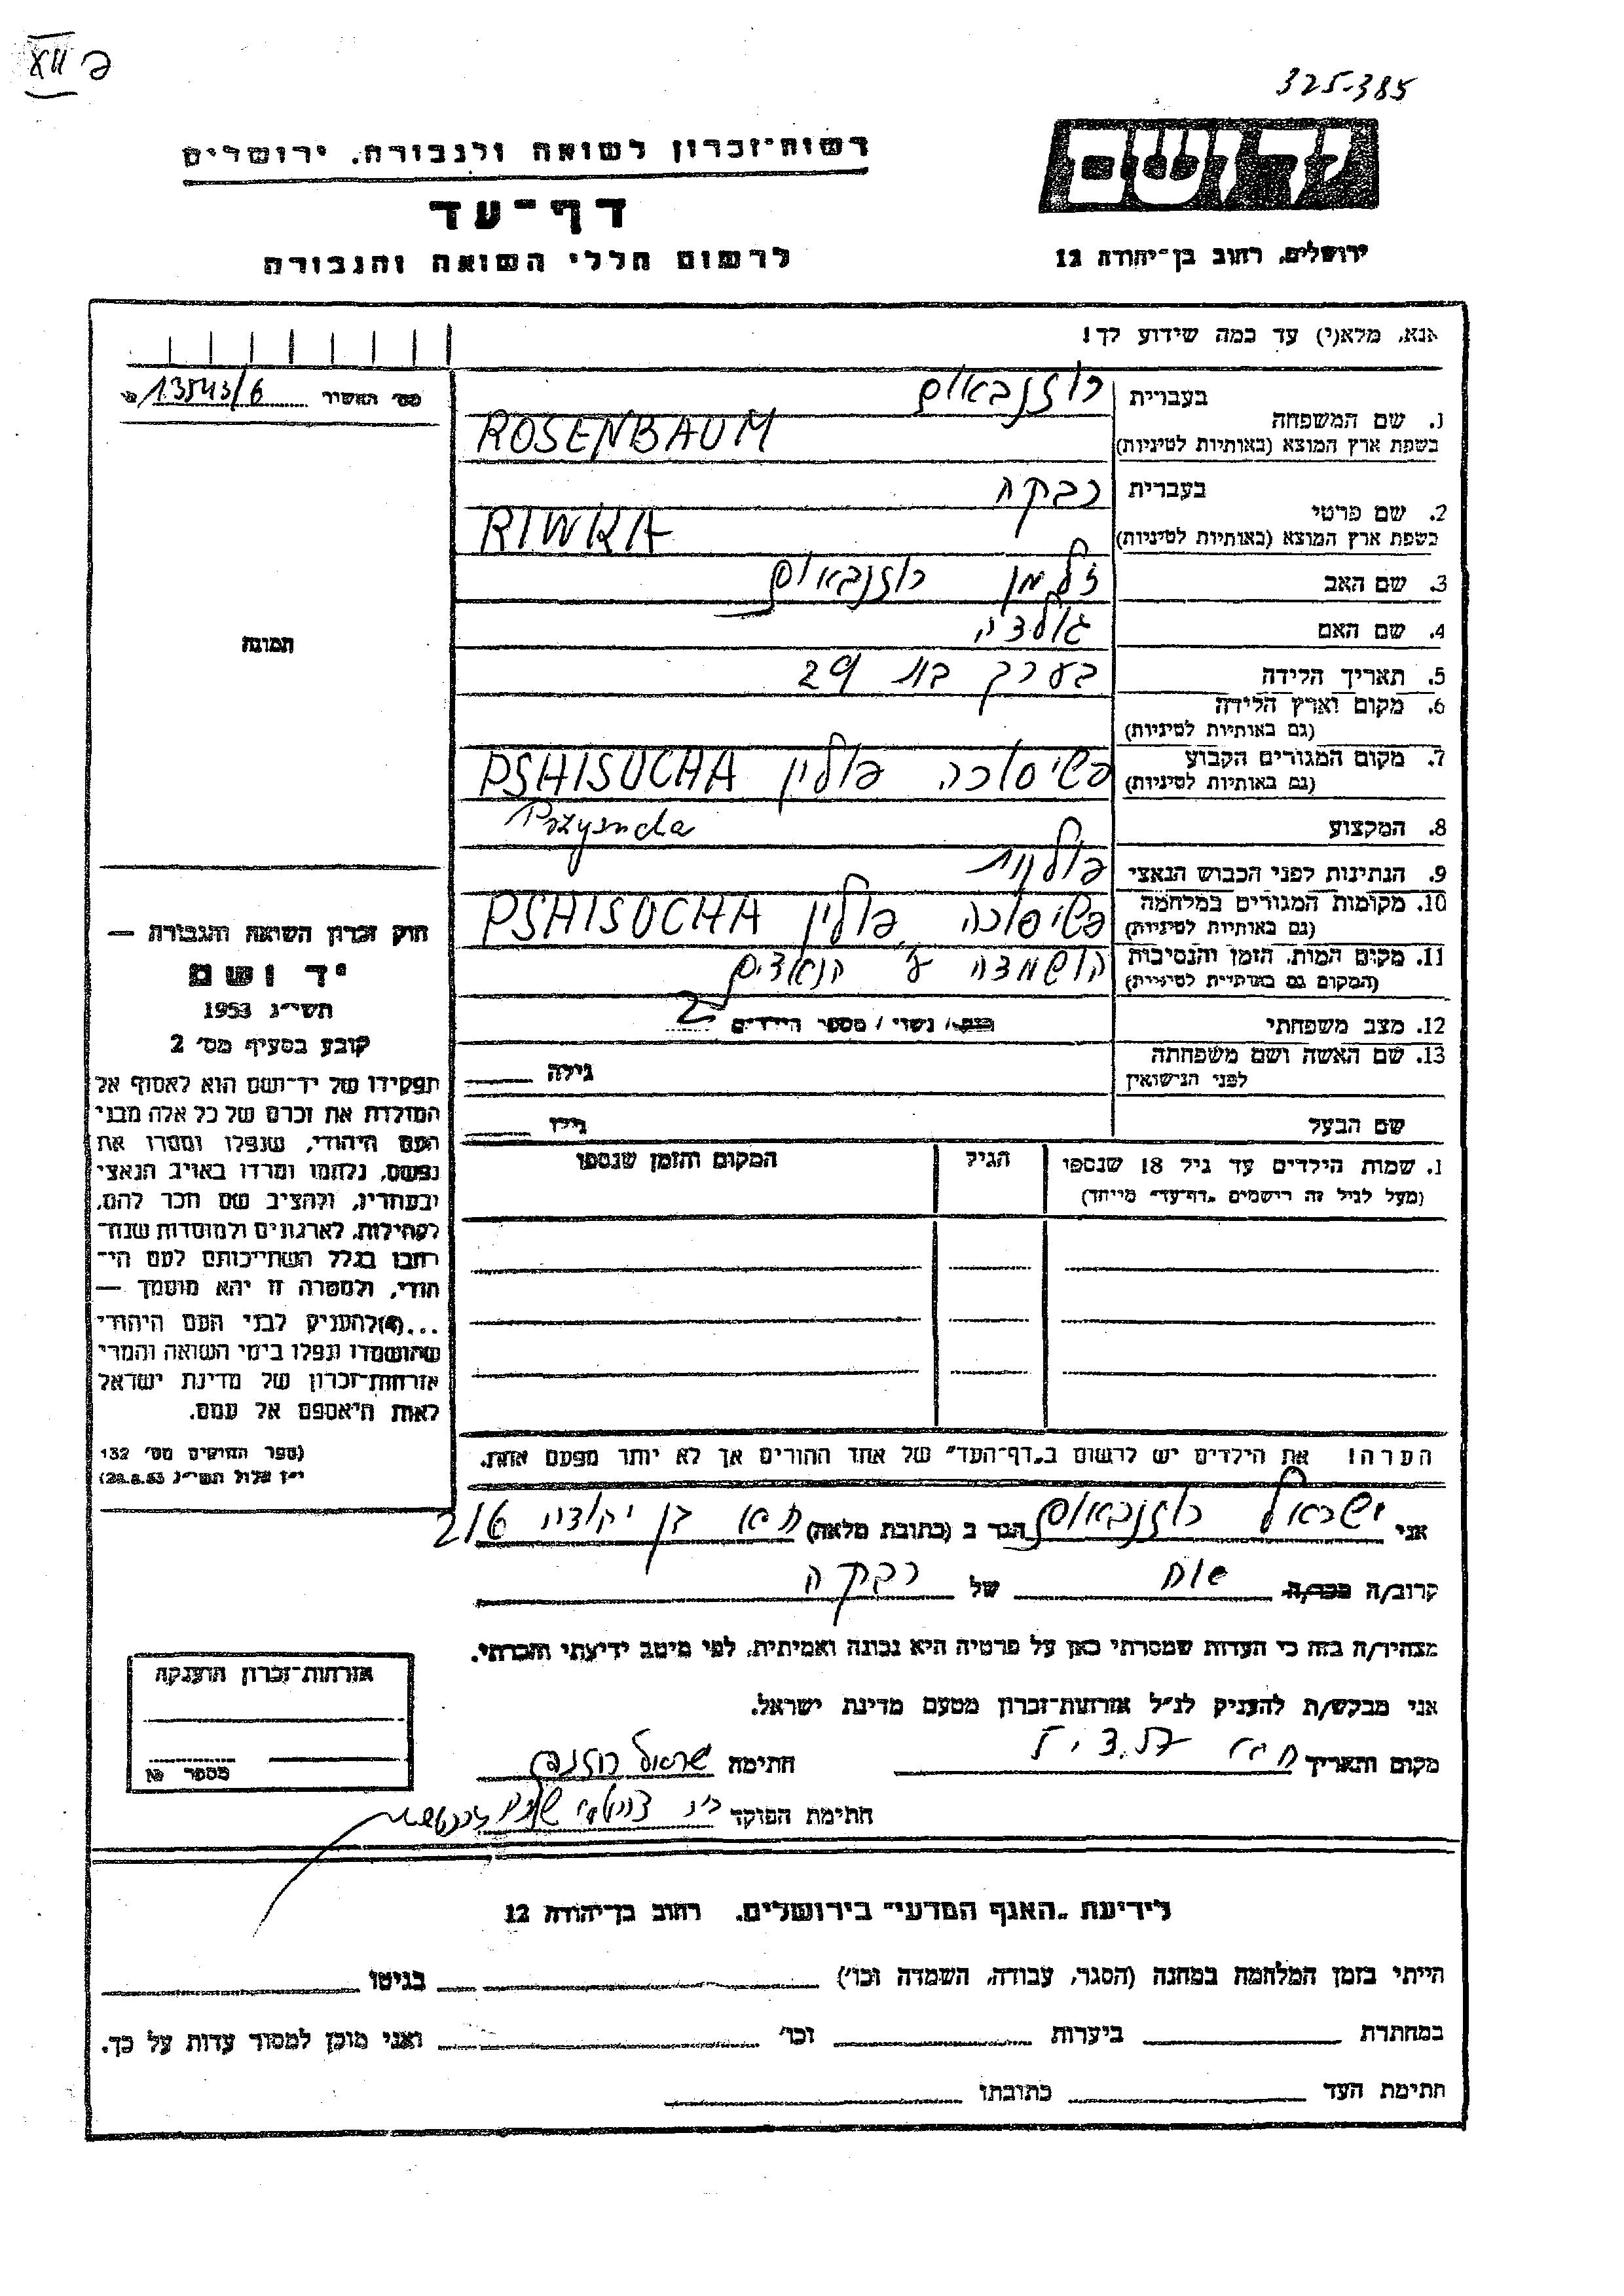 325-385
רשות־זכרון לשואה ולגבורה. ירושלים
דף־עד
לרשום חללי השואה והגבורה
יד ושם
ירושלים, רחוב בן־יהודה 12
אנא, מלא(י) עד כמה שידוע לך!
מס׳ תאשיר 13543/6
תמונה
1. שם המשפחה בעברית רוזנבאום
בשפת ארץ המוצא (באותיות לטיניות) ROSENBAUM
2. שם פרטי בעברית רבקה
בשפת ארץ המוצא (באותיות לטיניות) RIWKA
3. שם האב זלמן רוזנבאום
4. שם האם גולדה
5. תאריך הלידה בערך בת 29
6. מקום וארץ הלידה
(גם באותיות לטיניות)
7. מקום המגורים הקבוע פשיסוכה פולין PSHISUCHA
(גם באותיות לטיניות)
8. המקצוע
9. הנתינות לפני הכבוש הנאצי פולנית
10. מקומות המגורים במלחמה פשיסוכה פולין PSHISUCHA
(גם באותיות לטיניות)
11. מקום המות, הזמן והנסיבות הושמדה ע״ הנאצים
(המקום גם באותיות לטיניות)
12. מצב משפחתי רווק/ נשוי/ מספר הילדים 2
13. שם האשה ושם משפחתה
לפני הנישואין גילה
שם הבעל גילו
1. שמות הילדים עד גיל 18 שנספו הגיל המקום והזמן שנספו
(מעל לגיל זה רישמים „דף־עד״ מיוחד)
הערה! את הילדים יש לרשום ב„דף־העד״ של אחד ההורים אך לא יותר מפעם אחת.
חוק זכרון השואה והגבורה —
יד ושם
תשי״ג 1953
קובע בסעיף מס׳ 2
תפקידו של יד־ושם הוא לאסוף אל
המולדת את זכרם של כל אלה מבני
העם היהודי, שנפלו ומסרו את
נפשם, נלחמו ומרדו באויב הנאצי
ובעוזריו, ולהציב שם וזכר להם,
לקהילות, לארגונים ולמוסדות שנח־
רבו בגלל השתייכותם לעם הי־
הודי, ולמטרה זו יהא מוסמך —
...(4)להעניק לבני העם היהודי
שהושמדו ונפלו בימי השואה והמרי
אזרחות־זכרון של מדינת ישראל
לאות היאספם אל עמם.
(ספר החוקים מס׳ 132
י״ז אלול תשי״ג 28.8.53)
אני ישראל רוזנבאום הגר ב (כתובת מלאה) בן יהודה 2/6
קרוב/ה מכר/ה של רבקה
מצהיר/ה בזה כי העדות שמסרתי כאן על פרטיה היא נכונה ואמיתית, לפי מיטב ידיעתי והכרתי.
אני מבקש/ת להעניק לנ״ל אזרחות־זכרון מטעם מדינת ישראל.
מקום והתאריך חתימה
חתימת הפוקד
אזרחות־זכרון הוענקה
מספר №
לידיעת „האגף המדעי״ בירושלים. רחוב בן־יהודה 12
הייתי בזמן המלחמה במחנה (הסגר, עבודה, השמדה וכו׳) בגיטו
במחתרת ביערות וכו׳ ואני מוכן למסור עדות על כך.
חתימת העד כתובתו